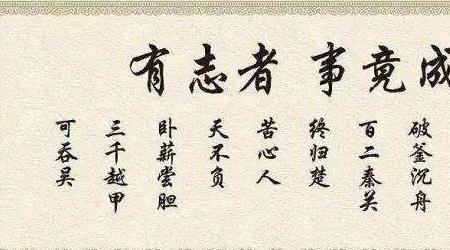 有志者 事竟成
破釜沉舟
百二秦关
终归楚
苦心人
天不负
卧薪尝胆
三千越甲
可吞吴